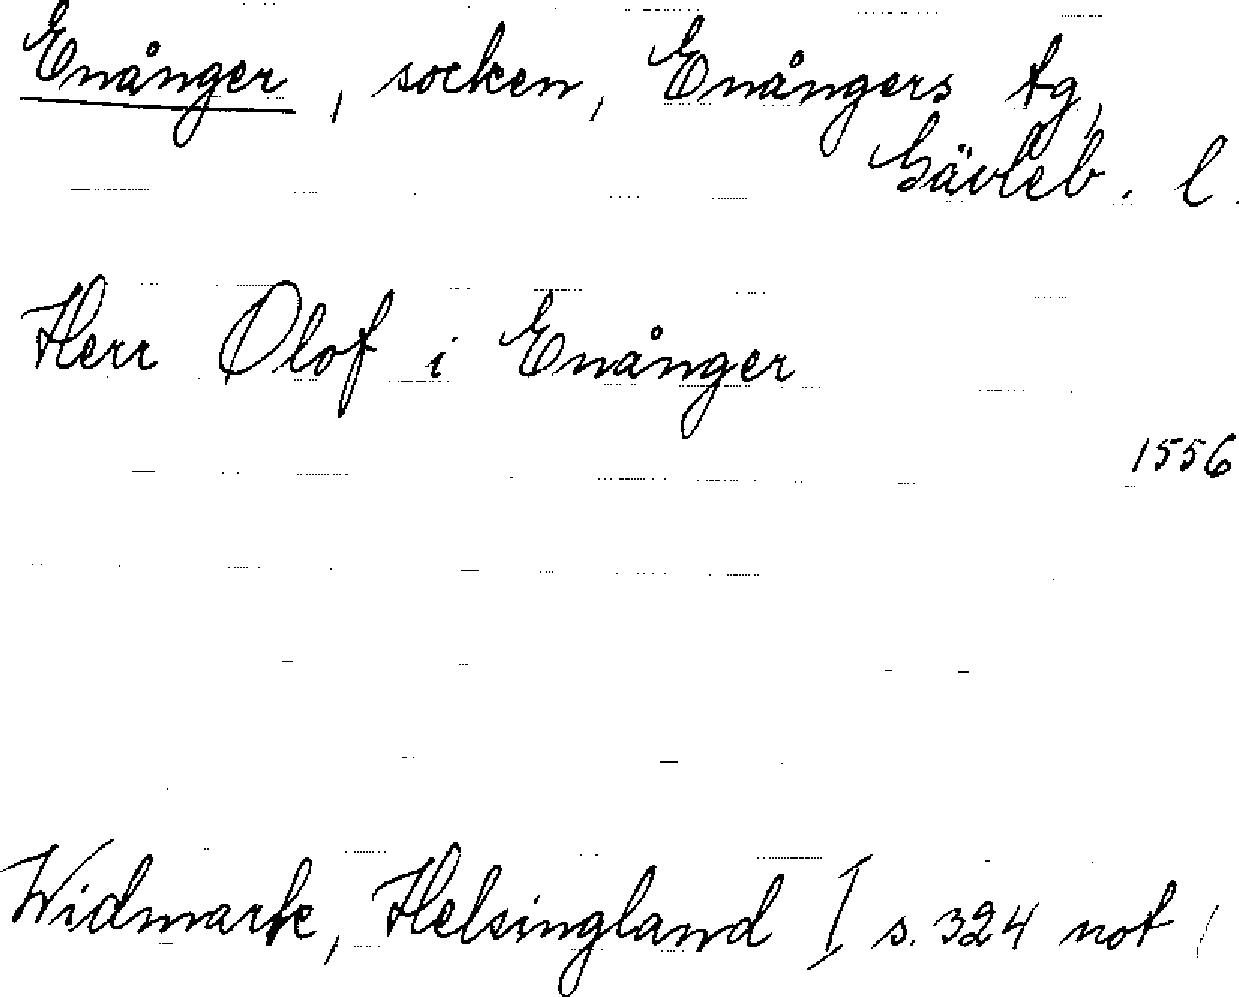 Enånger, socken, Enångers tg,
Gävleb. l.
Herr Olof i Enånger
1556
Widmark, Helsingland I s. 324 not